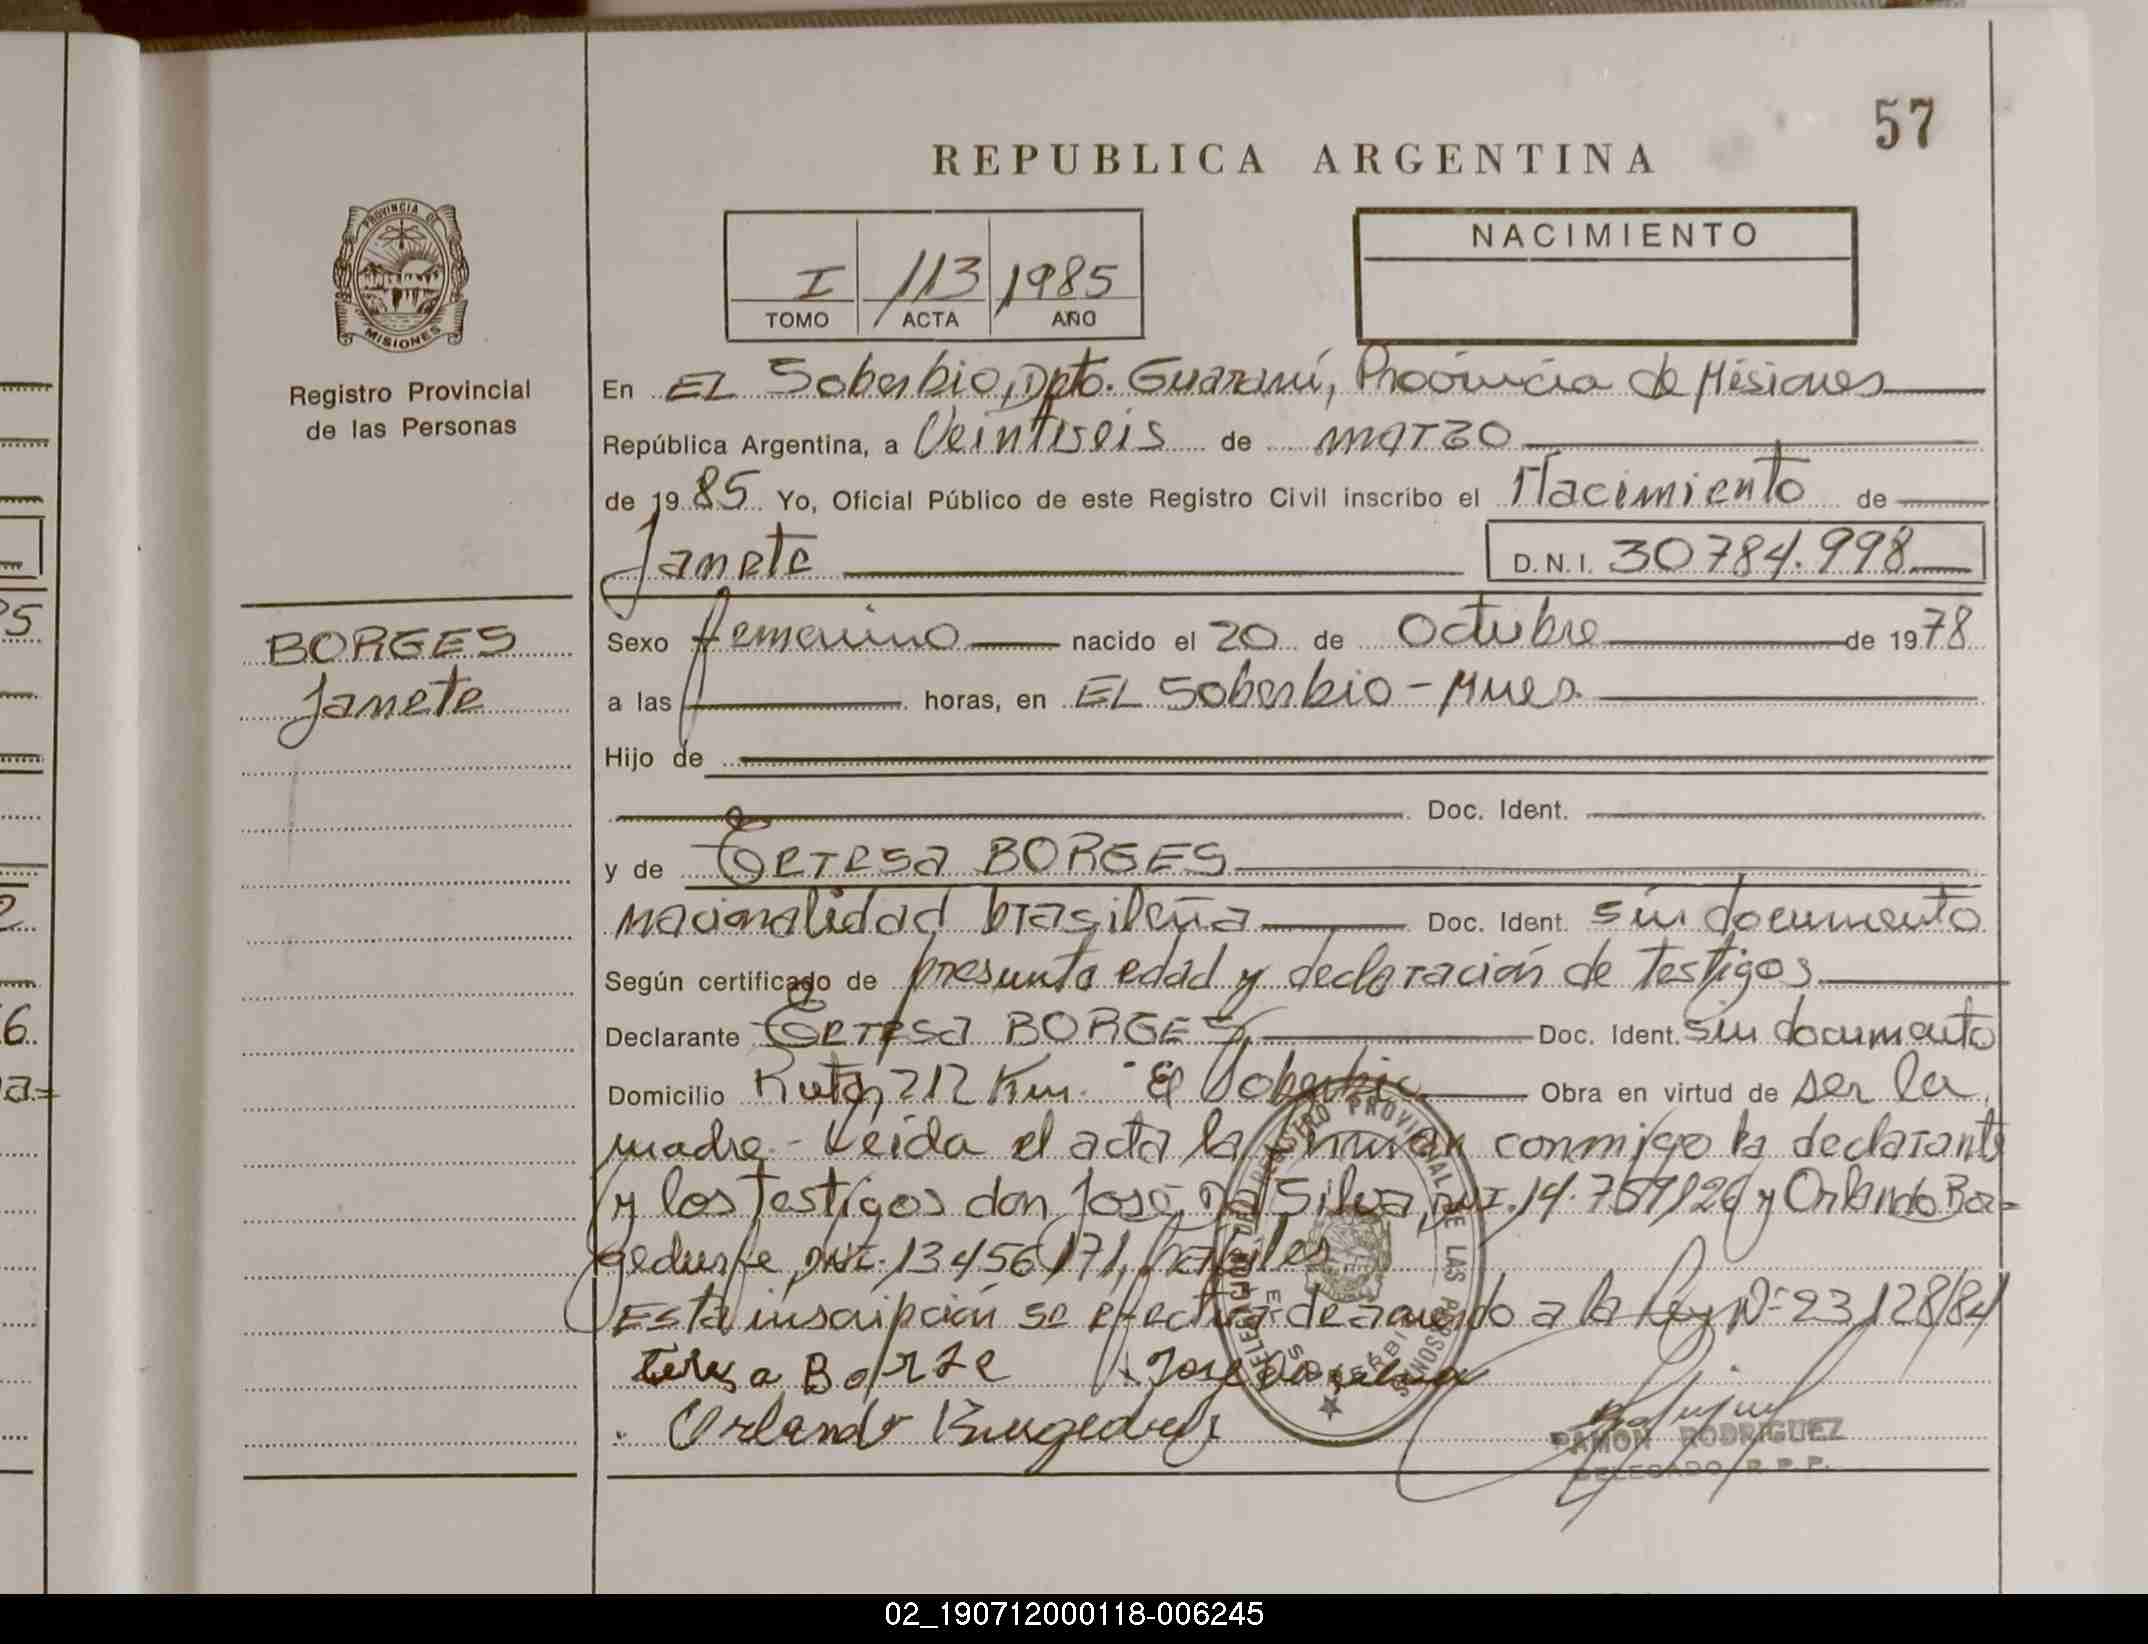 57
REPUBLICA ARGENTINA
PROVINCIA DE
MISIONES
Registro Provincial
de las Personas
I 113 1985
TOMO ACTA AÑO
NACIMIENTO
En EL Soberbio, Dpto. Guaraní, Provincia de Misiones
República Argentina, a Veintiseis de marzo
de 1985 Yo, Oficial Público de este Registro Civil inscribo el Nacimiento de
Janete D.N.I. 30784.998
BORGES
Janete
Sexo femenino nacido el 20 de Octubre de 1978
a las horas, en EL Soberbio - Mnes.
Hijo de
Doc. Ident.
y de Teresa BORGES
nacionalidad brasileña Doc. Ident. sin documento
Según certificado de presunta edad y declaración de testigos.
Declarante Teresa BORGES, Doc. Ident. sin documento
Domicilio Ruta 212 Km. El Soberbio Obra en virtud de ser la
madre.- Leída el acta la firman conmigo la declarante
y los testigos don José Da Silva, DNI. y Orlando
DNI. 13456171, hábiles
Esta inscripción se efectúa de acuerdo a la Ley Nº 23.128/84
Teresa Borge Jose Da Silva
Orlando
REGISTRO PROVINCIAL DE LAS PERSONAS
EL SOBERBIO
RAMON RODRIGUEZ
DELEGADO R.P.P.
02_190712000118-006245